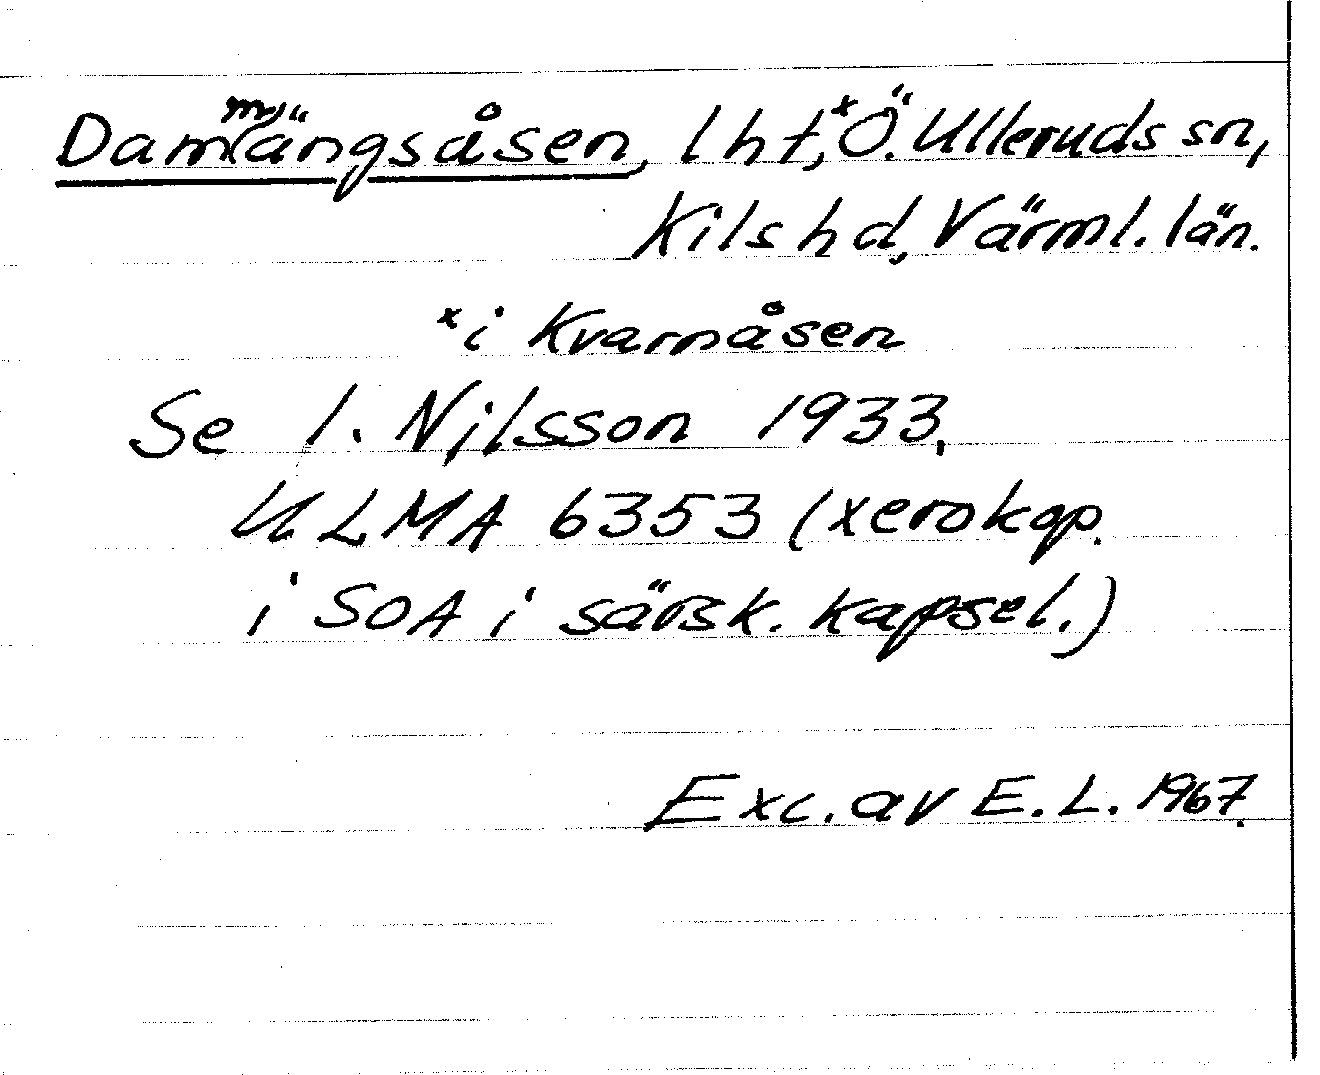 Dammängsåsen, lht,ˣ Ö. Ulleruds sn,
Kils hd, Värml. län.
ˣi Kvarnåsen
Se I. Nilsson 1933,
ULMA 6353 (xerokop.
i SOA i särsk. kapsel.)
Exc. av E. L. 1967.